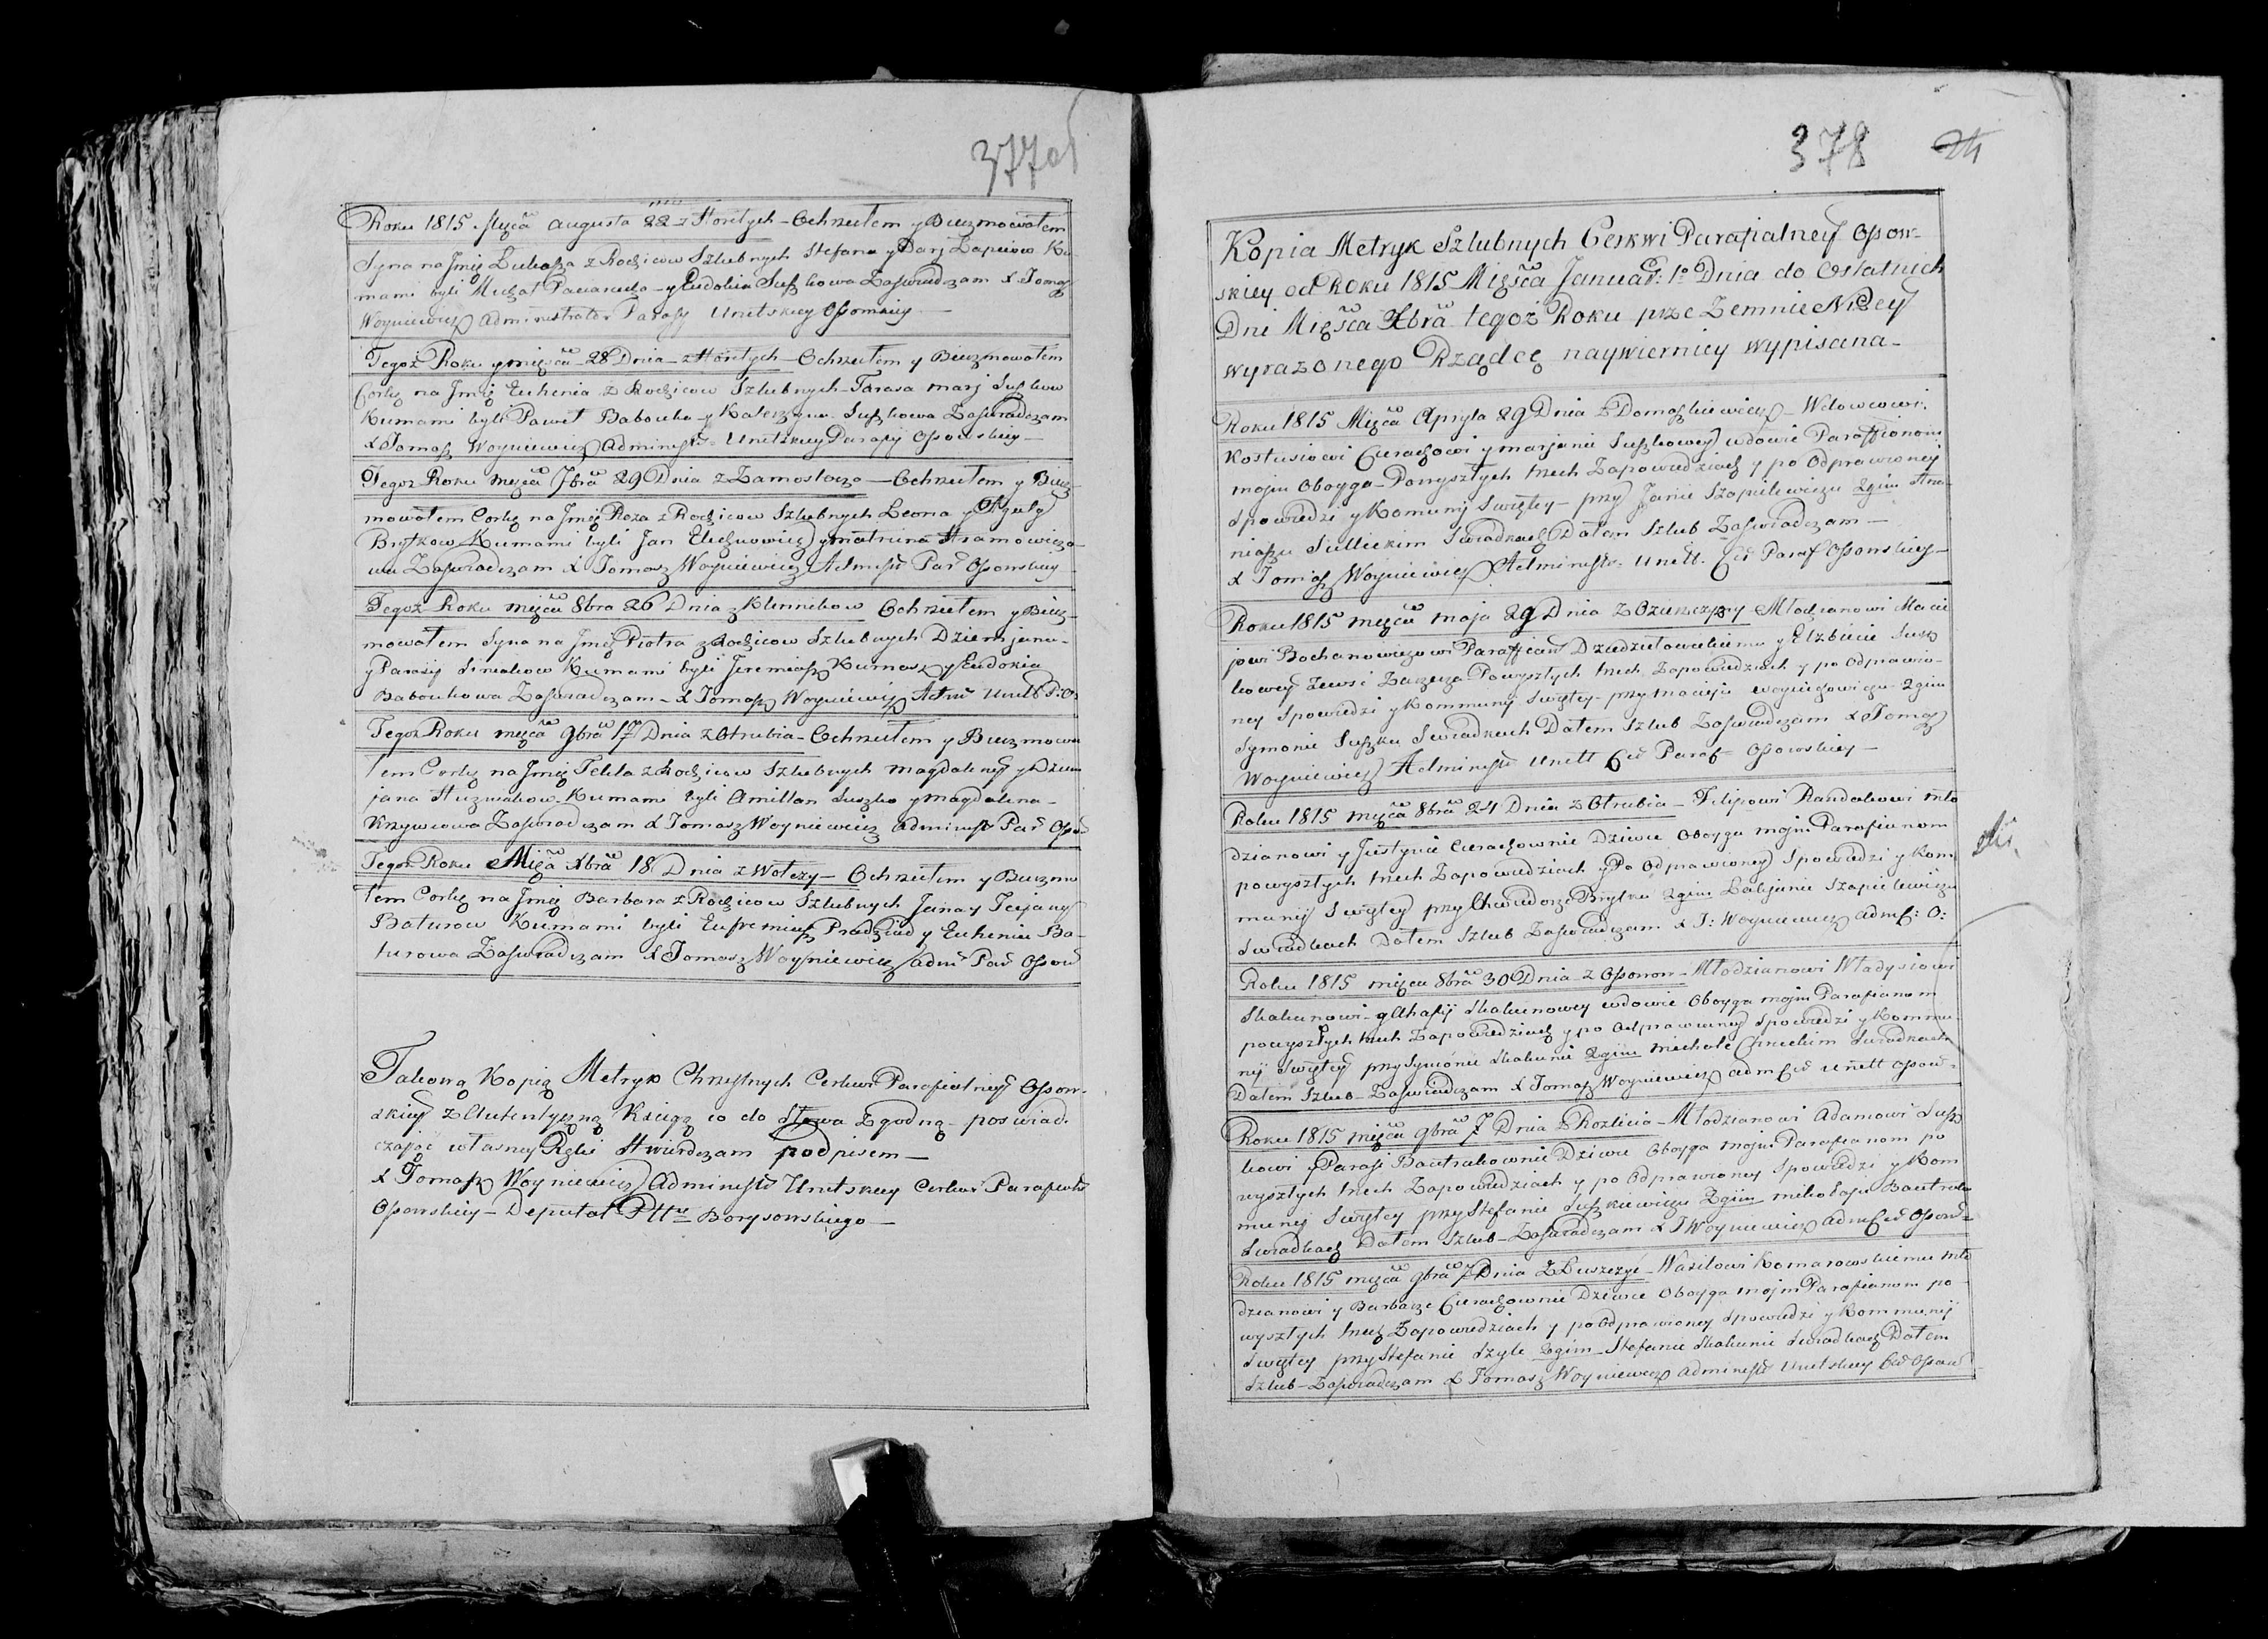 377об
Roku 1815 Mięca Augusta 22 z Horełych – Ochrzciłem y Bierzmowałem
Syna na Jmię Łukasza z Rodzicow Szlubnych Stefana y Darj Ku
mami byli Michał y Eudokia Suszkowa Zaświadczam X Tomasz
Woyniewicz Administrator Parafij Unitskiey
Tegoż Roku y mięsca 28 Dnia z Horełych – Ochrzciłem y Bierzmowałem
Corkę na Jmię Euhenia z Rodzicow Szlubnych Tarasa Marj Suszkow
Kumami byli Paweł Babouka y Katerzyna Suszkowa Zaświadczam
X Tomasz Woyniewicz Administr. Unitskiey Parafij Osowskiey –
Tegoż Roku mięca 7bra 29 Dnia z Zamostocza – Ochrzciłem y Bierz-
mowałem Corkę na Jmię Roza z Rodzicow Szlubnych Leona y
Brytkow Kumami byli Jan y Matruna Hramowiczo-
wa Zaświadczam X Tomasz Woyniewicz Administr Par Osowskiey
Tegoż Roku mięca 8bra 26 Dnia z Klinnikow Ochrzciłem y Bierz-
mowałem Syna na Jmię Piotra z Rodzicow Szlubnych Dziemjana-
y Parasij Siniakow Kumami byli Jeremiasz Kumasz y Eudokia
Baboukowa Zaświadczam – X Tomasz Woyniewicz Adm Unitt P: O:
Tegoż Roku mięca 9bra 17 Dnia z Otrubia – Ochrzciłem y Bierzmowa
łem Corkę na Jmię Tekla z Rodzicow Szlubnych Magdaleny y Dziem
jana Kumami byli Amillan Suszko y Magdalena –
Krzywcowa Zaświadczam X Tomasz Woyniewicz Administr Par Osow
Tegoż Roku Mięca Xbra 18 Dnia z Wołczy – Ochrzciłem y Bierzmo
łem Corkę na Jmię Barbara z Rodzicow Szlubnych Jana y Tacjany
Baturow Kumami byli Eufremiusz Pradziad y Euhenia Ba-
turowa Zaświadczam X Tomasz Woyniewicz Adm Par Osow
Takową Kopią Metryk Chrzestnych Cerkwi Parafialney Osow-
skiey z Autentyczną Xsięgą co do Słowa Zgodną – poswiad-
czając własney Ręki stwierdzam podpisem –
X Tomasz Woyniewicz Administr Unitskiey Cerkwi Parafialn
Osowskiey – Deputat Pttu Borysowskiego –
378 24
Kopia Metryk Szlubnych Cerkwi Parafialney Osow-
skiey od Roku 1815 Mięsca Januar: 1° Dnia do Ostatnich
Dni Mięsca Xbra tegoż Roku prze Zemnie Niżey
wyrażonego Rządcę naywierniey wypisana –
Roku 1815 Mięca Apryla 29 Dnia z Domaszkiewicz – Wdowcowi
Kostusiowi Cierachowi y Marjanie Suszkowey wdowie Paraffionom
moim Oboyga – Powyszłych trzech Zapowiedziach y po Odprawioney
Spowiedzi y Komunij Swiętey – przy Janie Szapilewiczu 2gim
Sielickim Swiadkach Dałem Szlub Zaświadczam –
X Tomasz Woyniewicz Administr. Unitt. Cer Paraf Osowskiey –
Roku 1815 mięca Maja 29 Dnia z – Młodzianowi Macie
jowi Bochanowiczowi Paraffian y Elżbiecie Susz
kowey zewsi Zarzecza Powyszłych trzech Zapowiedziach y po Odprawio-
ney Spowiedzi y Kommunij Swiętey – przy Macieju 2gim
Symonie Suszku Swiadkach Dałem Szlub Zaświadczam X Tomasz
Woyniewicz Administr Unitt Cer Paraf Osowskiey –
Roku 1815 mięca 8bra 24 Dnia z Otrubia – Filipowi Randakowi mło
dzianowi y Justynie Cierachownie Dziewce Oboyga moim Parafianom
powyszłych trzech Zapowiedziach y Po Odprawioney Spowiedzi y Kom
munij Swiętey przy Chwiedorze Brytku 2gim Szapielewiczu
Swiadkach Dałem Szlub Zaświadczam X T: Woyniewicz Adm C: O:
Roku 1815 mięca 8bra 30 Dnia z Ossowa – Młodzianowi Władysiowi
Skakunowi – y Ahafij Skakunowey wdowie Oboyga moim Parafianom
powyszłych trzech Zapowiedziach y po Odprawioney Spowiedzi y Kommu
nij Swiętey przy Symonie Skakunie 2gim Michale Swiadkach
Dałem Szlub – Zaświadczam X Tomasz Woyniewicz Adm Cer Unitt Osow –
Roku 1815 mięca 9bra 7 Dnia z – Młodzianowi Adamowi Susz
kowi y Parasj Bautrukownie Dziewce Oboyga moim Parafianom po
wyszłych trzech Zapowiedziach y po Odprawioney Spowiedzi y Kom
munij Swiętey przy Stefanie Suszkiewiczu 2gim Mikołaju Bautruku
Swiadkach Dałem Szlub – Zaświadczam X T Woyniewicz Adm Cer Osow –
Roku 1815 mięca 9bra 7 Dnia z – Wasilowi Komarowskiemu Mło
dzianowi y Barbarze Cierachownie Dziewce Oboyga moim Parafianom po
wyszłych trzech Zapowiedziach y po Odprawioney Spowiedzi y Kommunij
Swiętey przy Stefanie Szyle 2gim – Stefanie Skakunie Swiadkach Dałem
Szlub – Zaświadczam X Tomasz Woyniewicz Administr Unitskiey Cer Osow